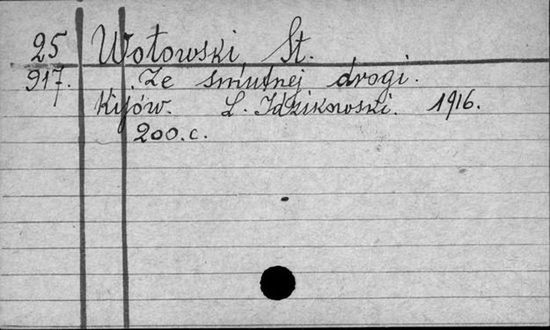 25 Wotowski St.
917. Ze smutnej drogi.
Kijów. L. Idzikowski. 1916.
200.c.